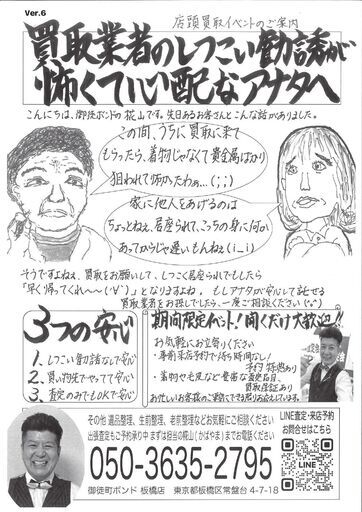 Ver.6
店頭買取イベントのご案内
買取業者のしつこい勧誘が
怖くて心配なアナタへ
こんにちは、御徒町ボンドの梶山です。先日あるお客さんとこんな話がありました。
この間、うちに買取に来て
もらったら、着物じゃなくて貴金属ばかり
狙われて怖かったわぁ…(;;)
家に他人をあげるのは
ちょっとねぇ、居座られて、こっちの身に何か
あってからじゃ遅いもんねぇ(i_i)
そうですよねぇ、買取をお願いして、しつこく居座られでもしたら
「早く帰ってくれ〜〜(´∀`)」となりますよね。もしアナタが安心して託せる
買取業者をお探しでしたら、一度ご相談ください(^o^)
3つの安心
1. しつこい勧誘なしで安心
2. 買い物先でやってて安心
3. 査定のみでもOKで安心
期間限定イベント!聞くだけ大歓迎!!
お気軽にお立寄りください
・事前来店予約で待ち時間なし!
予約特典あり
・着物や毛皮など豊富な査定品目
買取保証あり
その他 遺品整理、生前整理、老前整理などお気軽にご相談ください
出張査定もご予約承り中 まずは担当の梶山(かばやま)までお電話ください
050-3635-2795
御徒町ボンド 板橋店 東京都板橋区常盤台 4-7-18
LINE査定・来店予約
お問合せはこちら
LINE